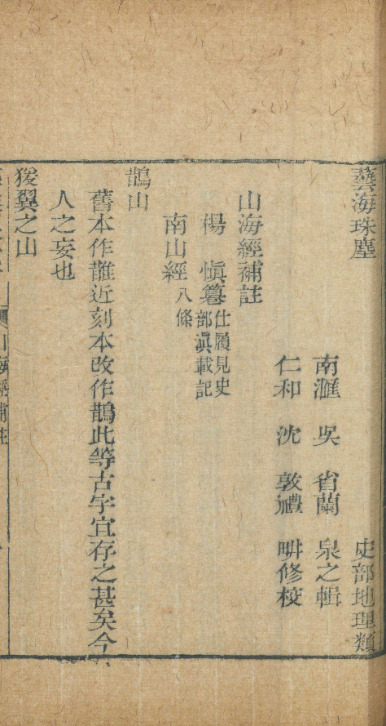 藝海珠塵　史部地理類
南滙　吳　省蘭　泉之輯
仁和　沈　敦禮　畊修校
山海經補註
楊　慎簒仕履見史部滇載記
南山經八條
鵲山
舊本作䧿近刻本改作鵲此等古字宜存之甚矣今
人之妄也
猨翼之山
山海經補註